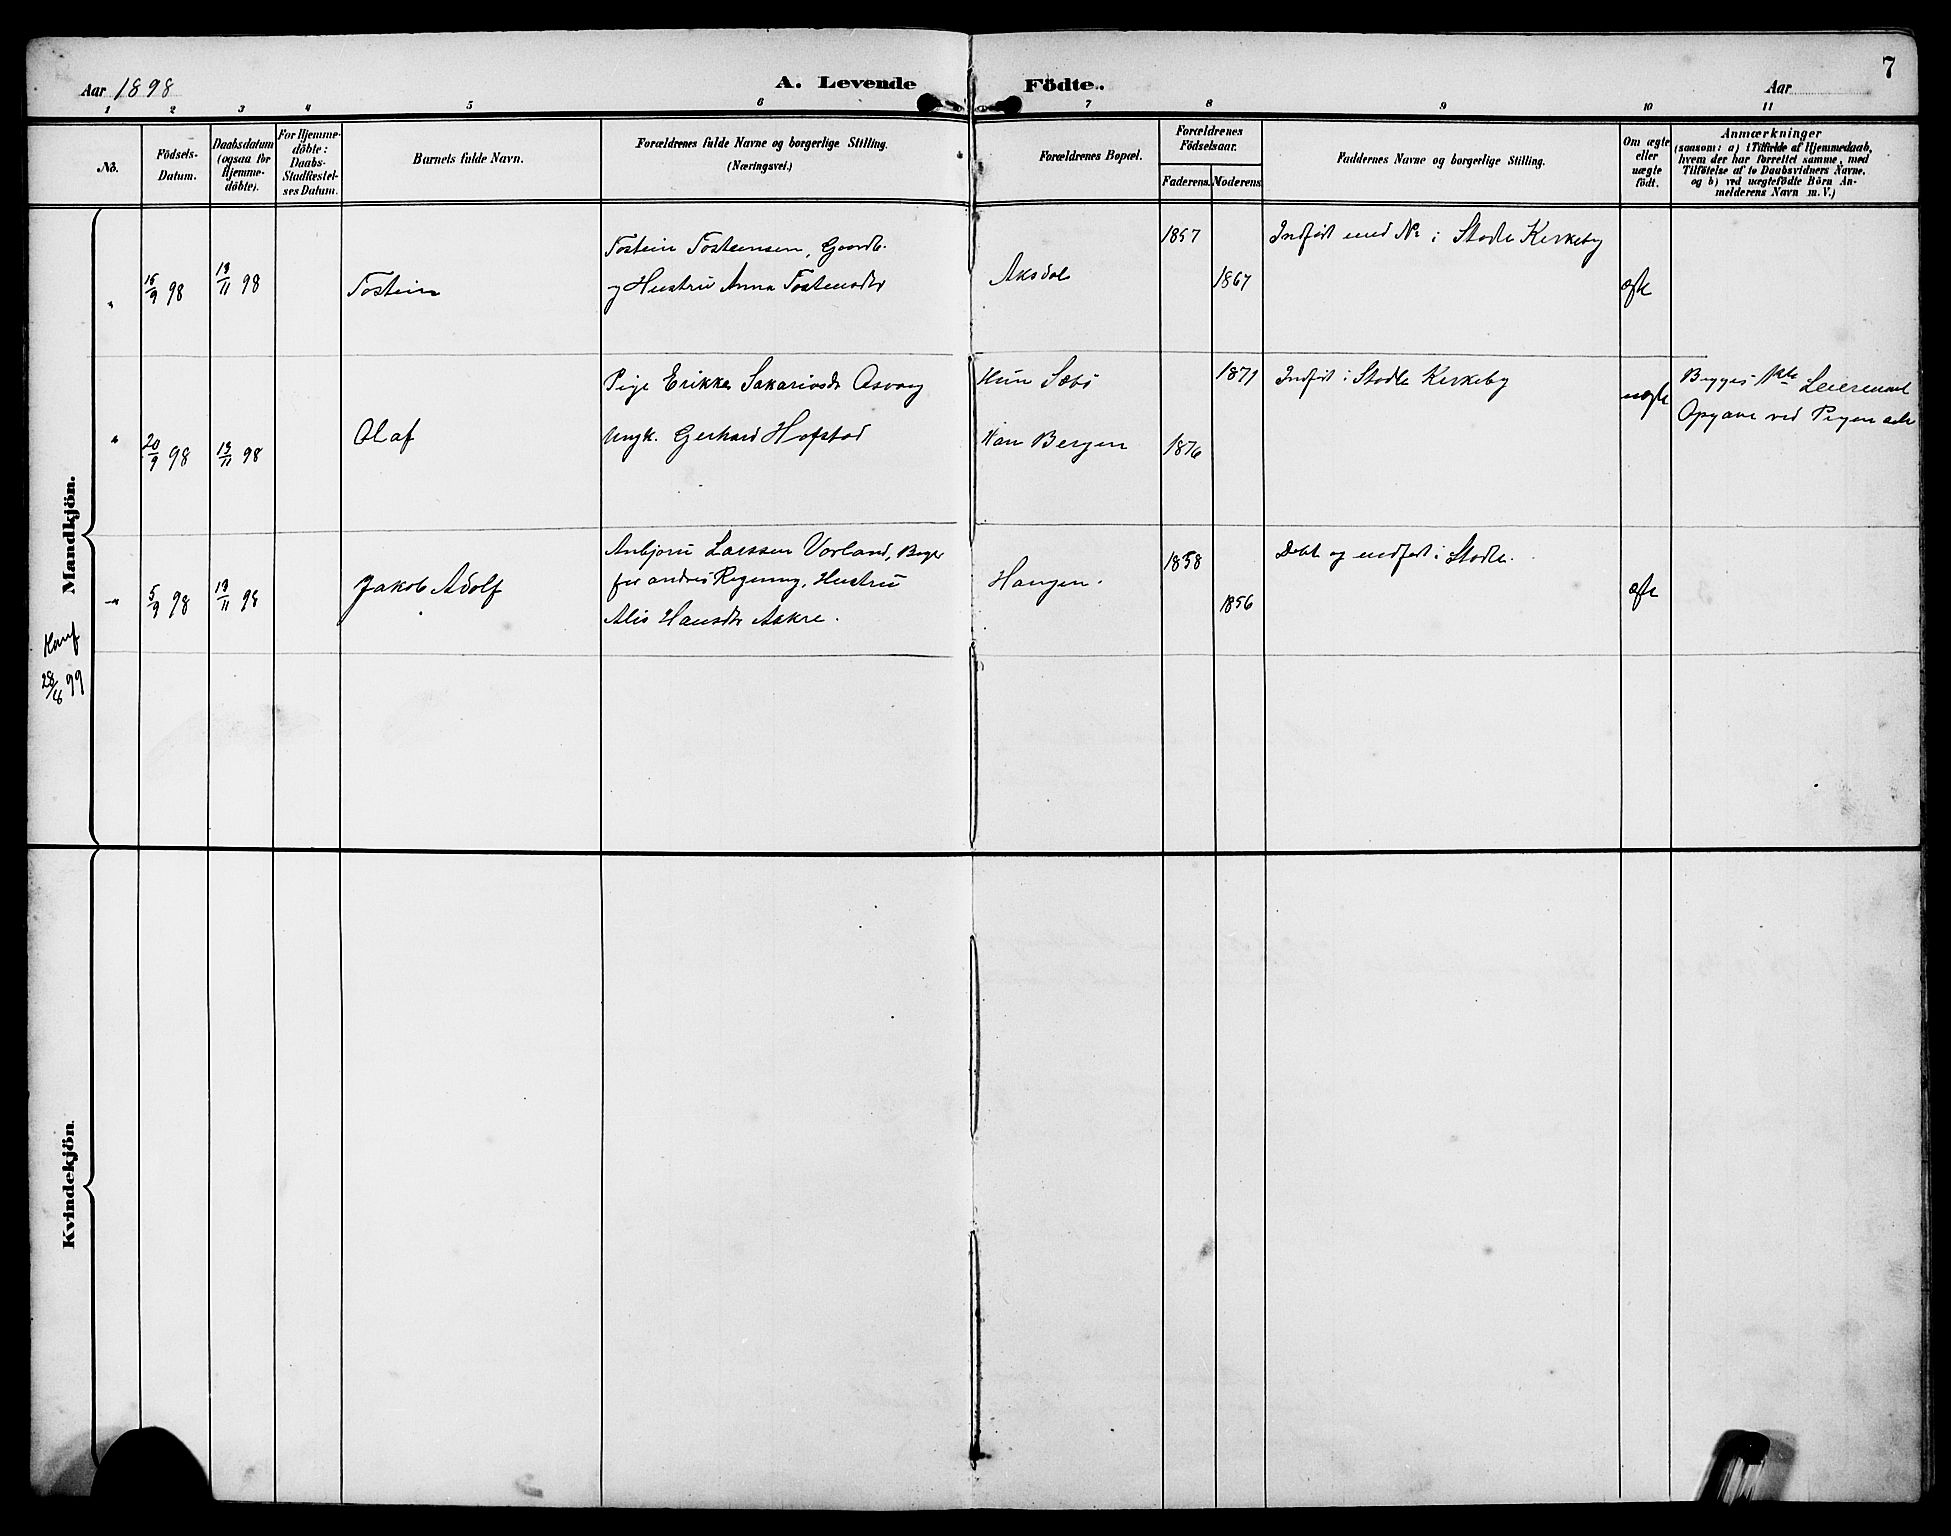 7
Aar 1898 A. Levende Födte. Aar
1 2 3 4 5 6 7 8 9 10 11
No.
Födsels-
Datum.
Daabsdatum
(ogsaa for
Hjemme-
döbte).
For Hjemme-
döbte:
Daabs-
Stadfæstel-
ses Datum.
Barnets fulde Navn.
Forældrenes fulde Navne og borgerlige Stilling.
(Næringsvei.)
Forældrenes Bopæl.
Forældrenes
Födselsaar.
Faderens. Moderens.
Faddernes Navne og borgerlige Stilling.
Om ægte
eller
uægte
födt.
Anmærkninger
(saasom: a) i Tilfælde af Hjemmedaab,
hvem der har forrettet samme, med
Tilföielse af to Daabsvidners Navne,
og b) ved uægtefödte Börn An-
melderens Navn m. V.)
Mandkjön.
" 15/9 98 13/11 98 Tostein
Tostein Tostensen, Gaardb.
og Hustru Anna Tostensdtr
Aksdal
1857
1867
Indført med No i Stodle Kirkeby
ægte
" 20/9 98 13/11 98 Olaf
Pige Erikka Sakariasdtr Asvang
Ungk. Gerhard Hofstad
Hun Sæbö
Han Bergen
1871
1876
Indført i Stodle Kirkeby
uægte
Begges 1ste Leiermaal
Opgave ved Pigen selv
" 5/9 98 13/11 98 Jakob Adolf
Anbjørn Larssen Vorland,
for andres Regning, Hustru
Alis Hansdtr Askre.
Haugen.
1858
1856
Døbt og indført i Stodle.
ægte
Konf
99
Kvindekjön.